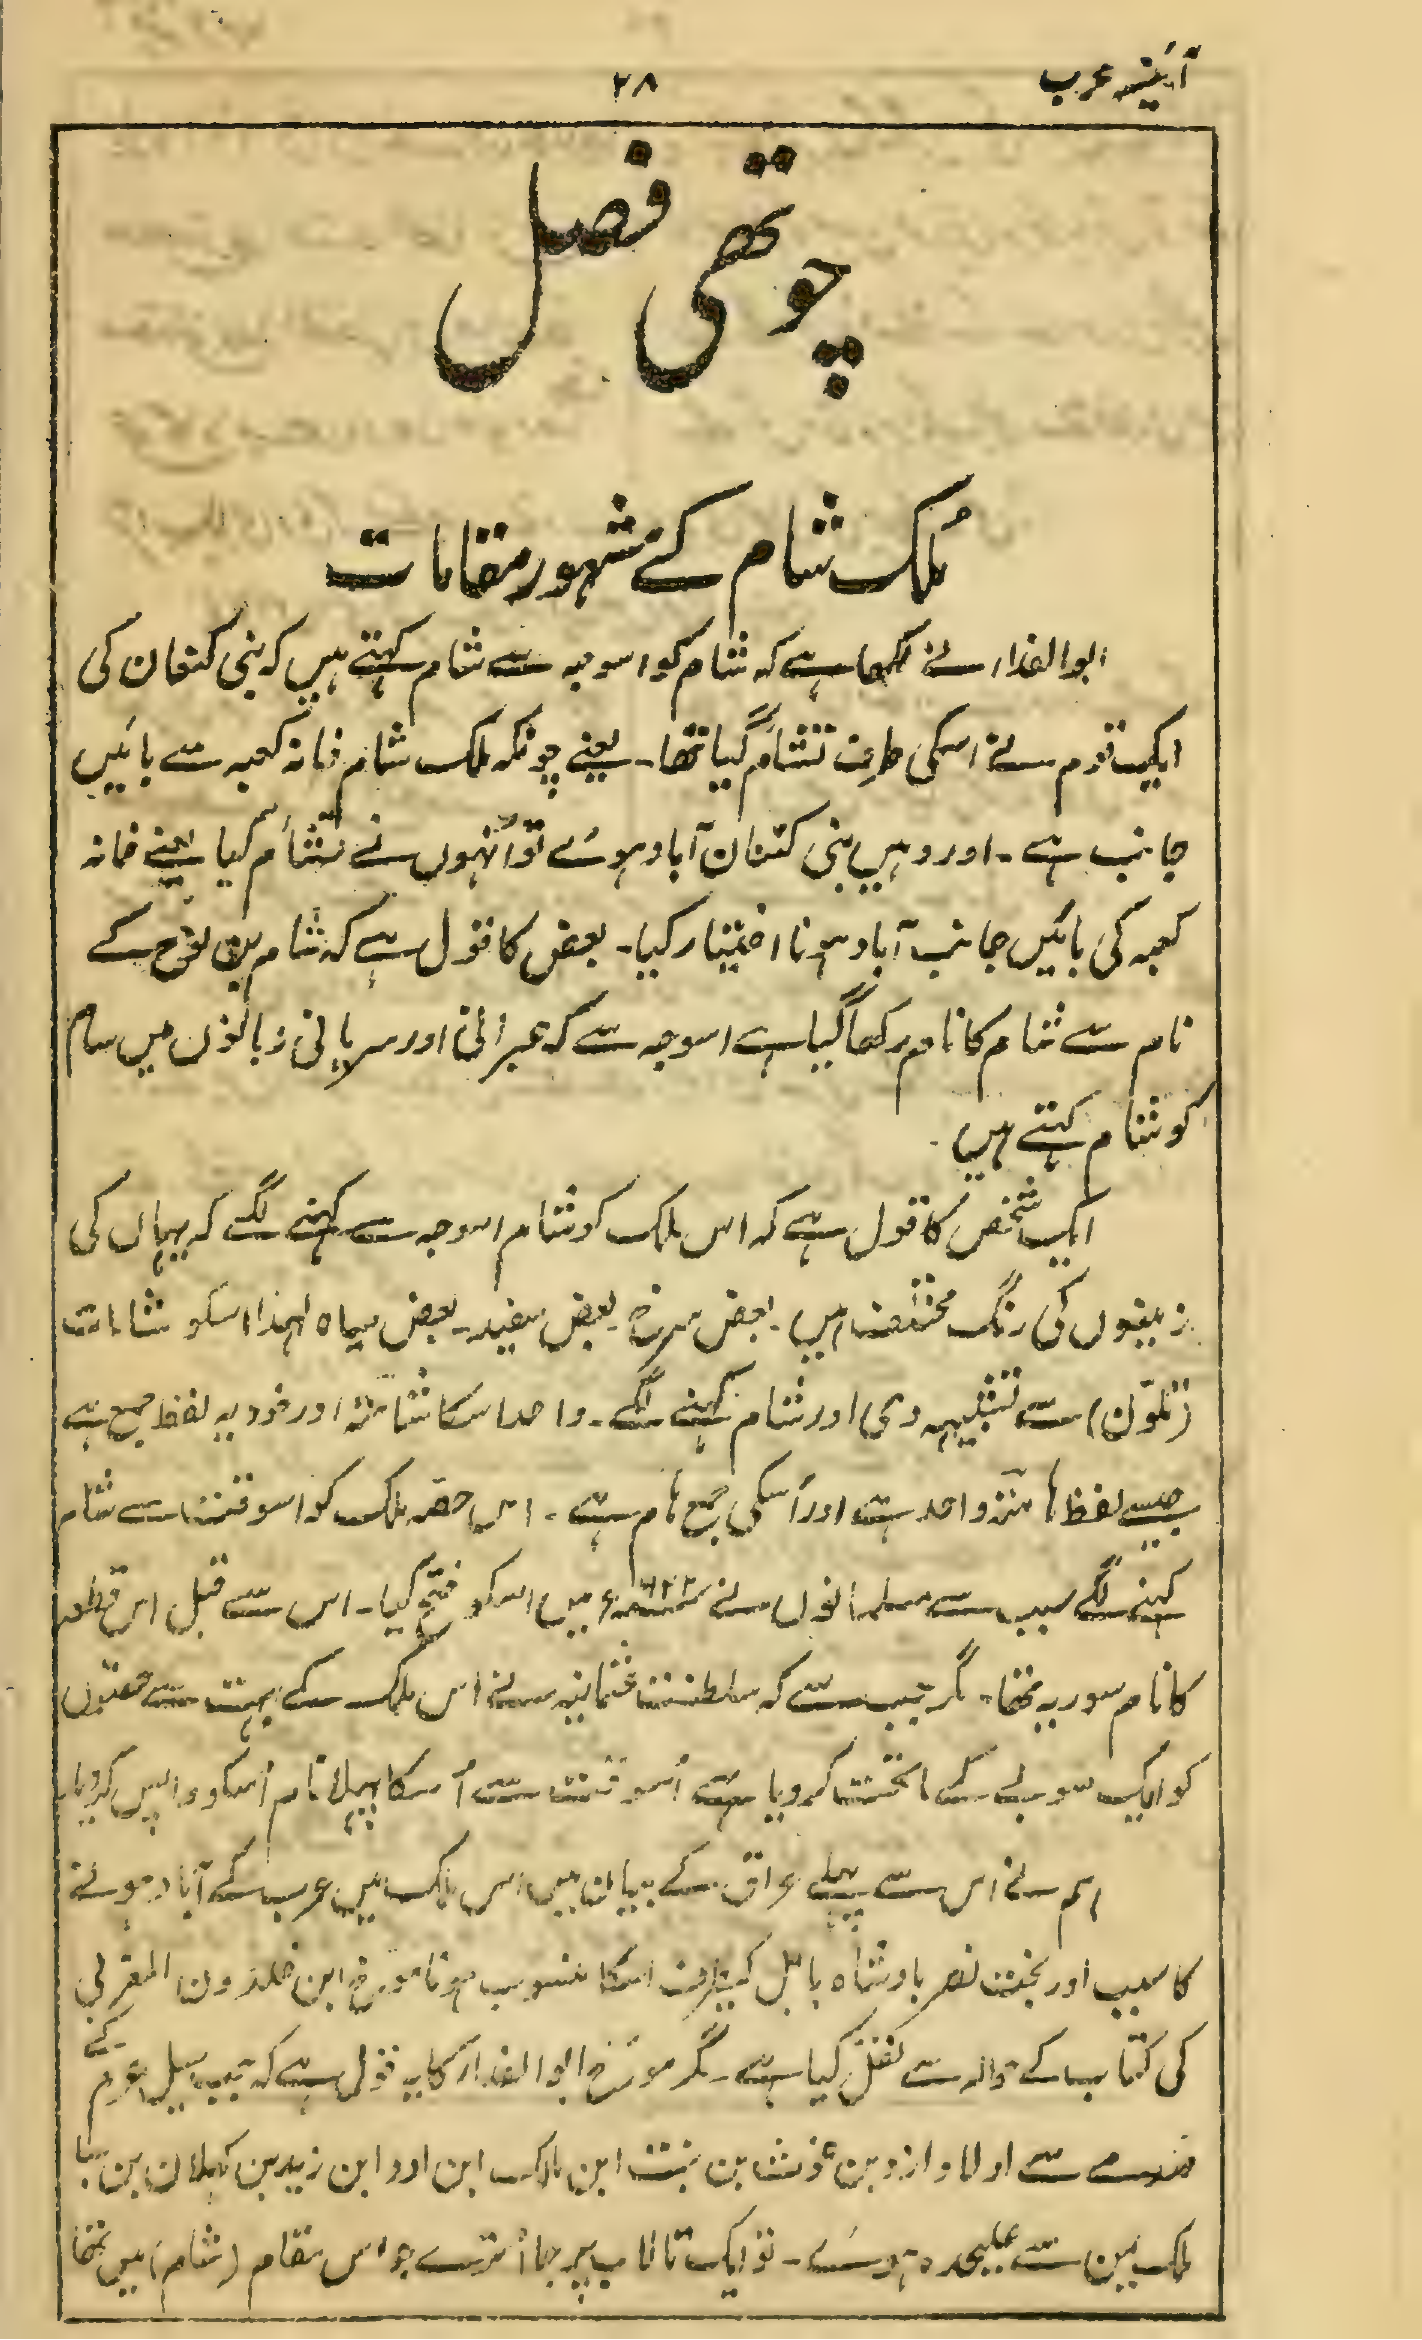 آئینہ عرب
۲۸
چوتھی فصل
مُلک شام کے مشہور مقامات
ابو الفداء نے لکھا ہے کہ شام کو اسوجہ سے شام کہتے ہیں کہ بنی کنعان کی
ایک قوم نے اسکی طرف تشاَم کیا تھا۔ یعنے چونکہ ملک شام خانہ کعبہ سے بائیں
جانب ہے۔ اور وہیں بنی کنعان آباد ہوئے تو اُنہوں نے تشأم کیا یعنے خانہ
کعبہ کی بائیں جانب آباد ہونا اختیار کیا۔ بعض کا قول ہے کہ شام بن نوح کے
نام سے شام کا نام رکھا گیا ہے اسوجہ سے کہ عبرانی اور سریانی زبانوں میں سام
کو شام کہتے ہیں۔
ایک شخص کا قول ہے کہ اس ملک کو شام اسوجہ سے کہنے لگے کہ یہاں کی
زمینوں کی رنگ مختلف ہیں۔ بعض سرخ۔ بعض سفید۔ بعض سیاہ لہذا اسکو شامات
(تلوّن) سے تشبیہہ دی اور شام کہنے لگے۔ واحد اسکا شامتہ اور خود یہ لفظ جمع ہے
جیسے لفظ ہامتہ واحد ہے اور اُسکی جمع ہام ہے۔ اس حصّہ ملک کو اسوقت سے شام
کہنے لگے جب سے مسلمانوں نے میں اسکو فتح کیا۔ اس سے قبل اس قطعہ
کا نام سوریہ تھا۔ مگر جب سے کہ سلطنت عثمانیہ نے اس ملک کے بہت سے حصّوں
کو ایک صوبے کے ماتحت کر دیا ہے اُسوقت سے اُسکا پہلا نام اُسکو واپس کر دیا۔
ہم نے اس سے پہلے عراق کے بیان میں اس ملک میں عرب کے آباد ہونے
کا سبب اور بخت نصر بادشاہ بابل کیطرف اسکا منسوب ہونا مورخ ابن خلدون المغربی
کی کتاب کے حوالہ سے نقل کیا ہے۔ مگر مورخ ابو الفدار کا یہ قول ہے کہ جب سیل عرم کے
سے اولاد ازد بن غوث بن بنت ابن مالک ابن ادد ابن زید بن کہلان بن سبا
ملک یمن سے علیحدہ ہوئے۔ تو ایک تالاب پر جا اُترے جو اس مقام (شام) میں تھا